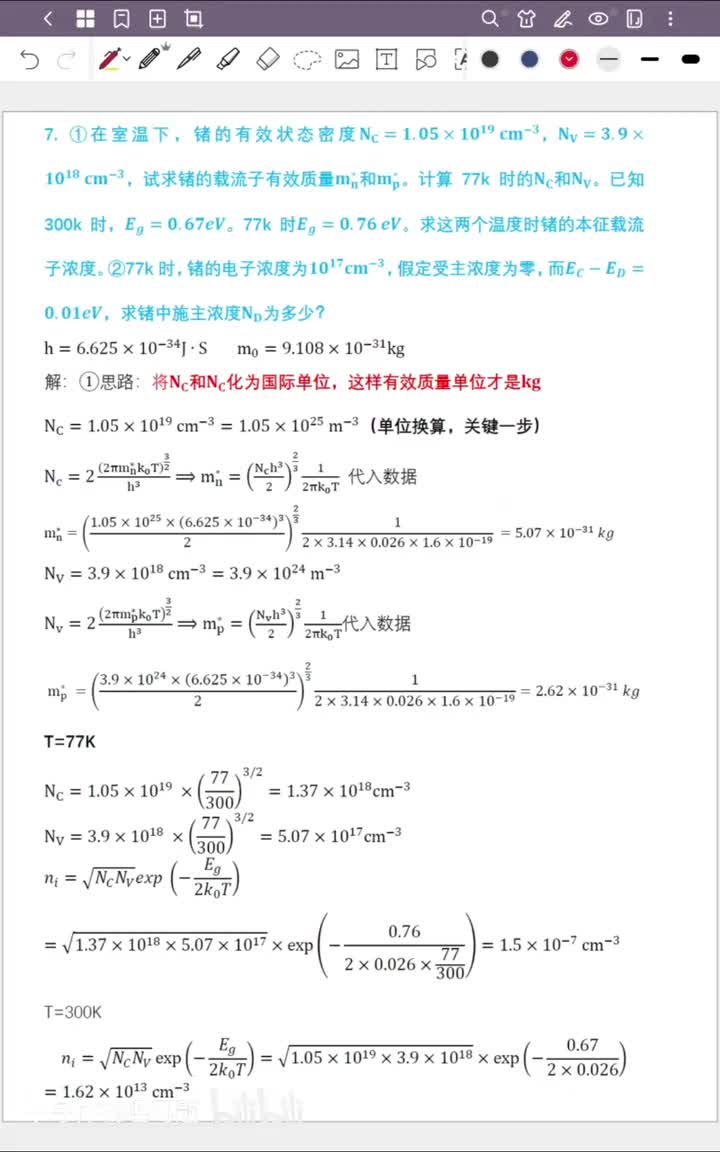 7. ①在室温下，锗的有效状态密度N_C = 1.05 × 10^19 cm^−3，N_V = 3.9 ×
10^18 cm^−3，试求锗的载流子有效质量m_n^*和m_p^*。计算 77k 时的N_C和N_V。已知
300k 时，E_g = 0.67eV。77k 时E_g = 0.76 eV。求这两个温度时锗的本征载流
子浓度。②77k 时，锗的电子浓度为10^17cm^−3，假定受主浓度为零，而E_C − E_D =
0.01eV，求锗中施主浓度N_D为多少?
h = 6.625 × 10^−34 J · S m_0 = 9.108 × 10^−31 kg
解：①思路：将N_C和N_C化为国际单位，这样有效质量单位才是kg
N_C = 1.05 × 10^19 cm^−3 = 1.05 × 10^25 m^−3（单位换算，关键一步）
N_c = 2 (2πm_n^*k_0T)^(3/2) / h^3 ⟹ m_n^* = (N_Ch^3 / 2)^(2/3) 1 / 2πk_0T 代入数据
m_n^* = (1.05 × 10^25 × (6.625 × 10^−34)^3 / 2)^(2/3) 1 / 2 × 3.14 × 0.026 × 1.6 × 10^−19 = 5.07 × 10^−31 kg
N_V = 3.9 × 10^18 cm^−3 = 3.9 × 10^24 m^−3
N_v = 2 (2πm_p^*k_0T)^(3/2) / h^3 ⟹ m_p^* = (N_vh^3 / 2)^(2/3) 1 / 2πk_0T 代入数据
m_p^* = (3.9 × 10^24 × (6.625 × 10^−34)^3 / 2)^(2/3) 1 / 2 × 3.14 × 0.026 × 1.6 × 10^−19 = 2.62 × 10^−31 kg
T=77K
N_C = 1.05 × 10^19 × (77 / 300)^3/2 = 1.37 × 10^18 cm^−3
N_V = 3.9 × 10^18 × (77 / 300)^3/2 = 5.07 × 10^17 cm^−3
n_i = √(N_CN_V) exp (− E_g / 2k_0T)
= √(1.37 × 10^18 × 5.07 × 10^17) × exp (− 0.76 / 2 × 0.026 × 77/300) = 1.5 × 10^−7 cm^−3
T=300K
n_i = √(N_CN_V) exp (− E_g / 2k_0T) = √(1.05 × 10^19 × 3.9 × 10^18) × exp (− 0.67 / 2 × 0.026)
= 1.62 × 10^13 cm^−3
bilibili